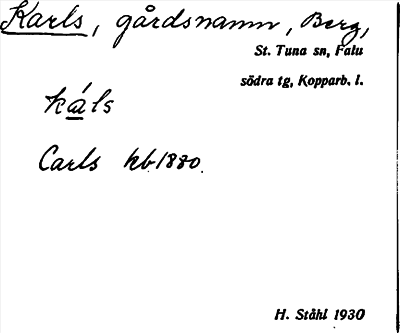 Karls, gårdsnamn, Berg,
St. Tuna sn, Falu
södra tg, Kopparb. l.
káls
Carls kb 1880.
H. Ståhl 1930